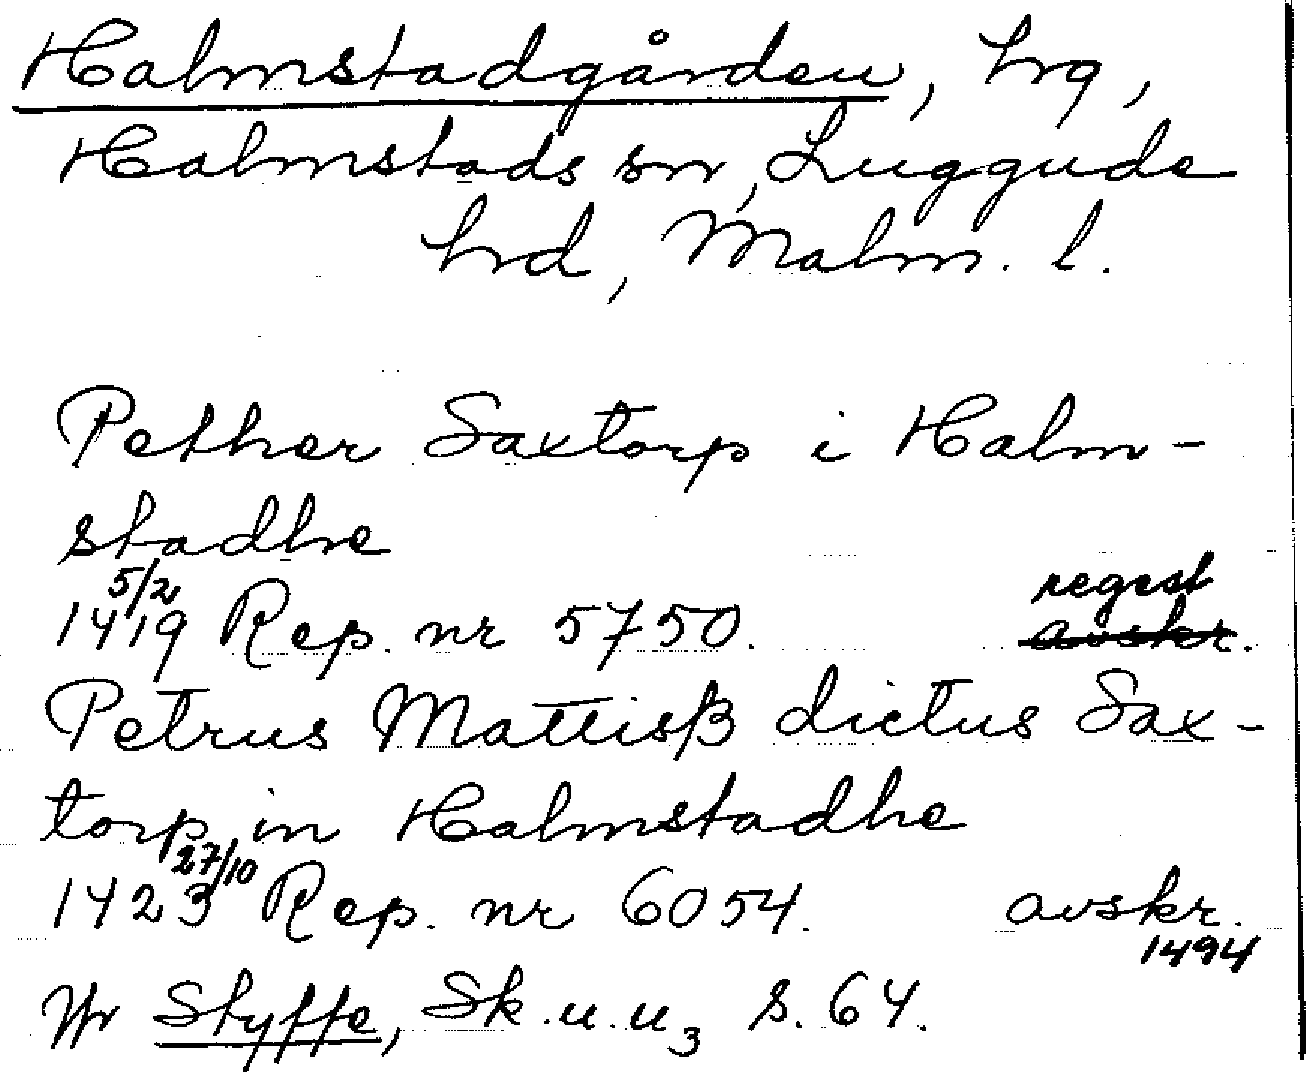 Halmstadgården, hrg,
Halmstads sn, Luggude
hrd, Malm. l.
Pether Saxtorp i Halm-
stadhe
5/2 regest
1419 Rep. nr 5750. avskr.
Petrus Mattisß dictus Sax-
torp in Halmstadhe
27/10
1423 Rep. nr 6054. avskr.
1494
Styffe, Sk.u.u3 s. 64.